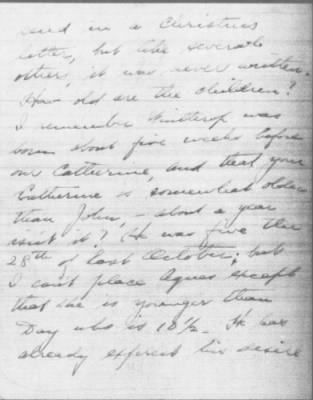 send in a Christmas
letter, but like several
others, it was never written.
How old are the children?
I remember Winthrop was
born about five weeks before
our Catherine, and that your
Catherine is somewhat older
than John, – about a year
isn't it? (He was five the
28th of last October; but
I can't place Agnes except
that she is younger than
Day who is 10½. He has
already expressed his desire